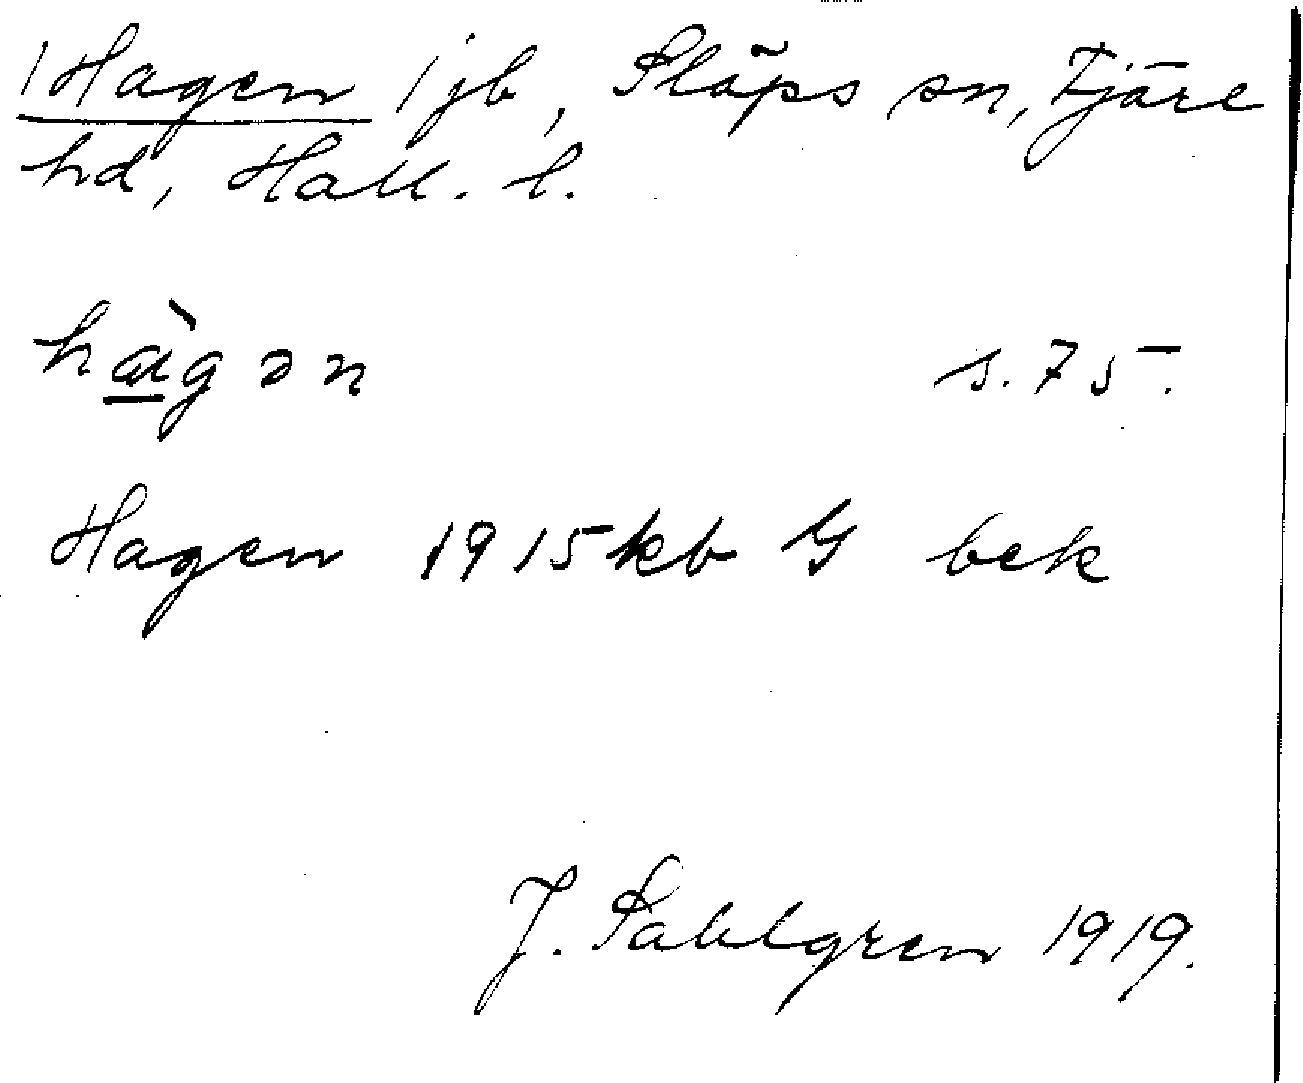 /Hagen/ jb, Släps sn, Fjäre
hd, Hall. l.
hɑ̀gən s. 75.
Hagen 1915 kb G bek
J. Sahlgren 1919.